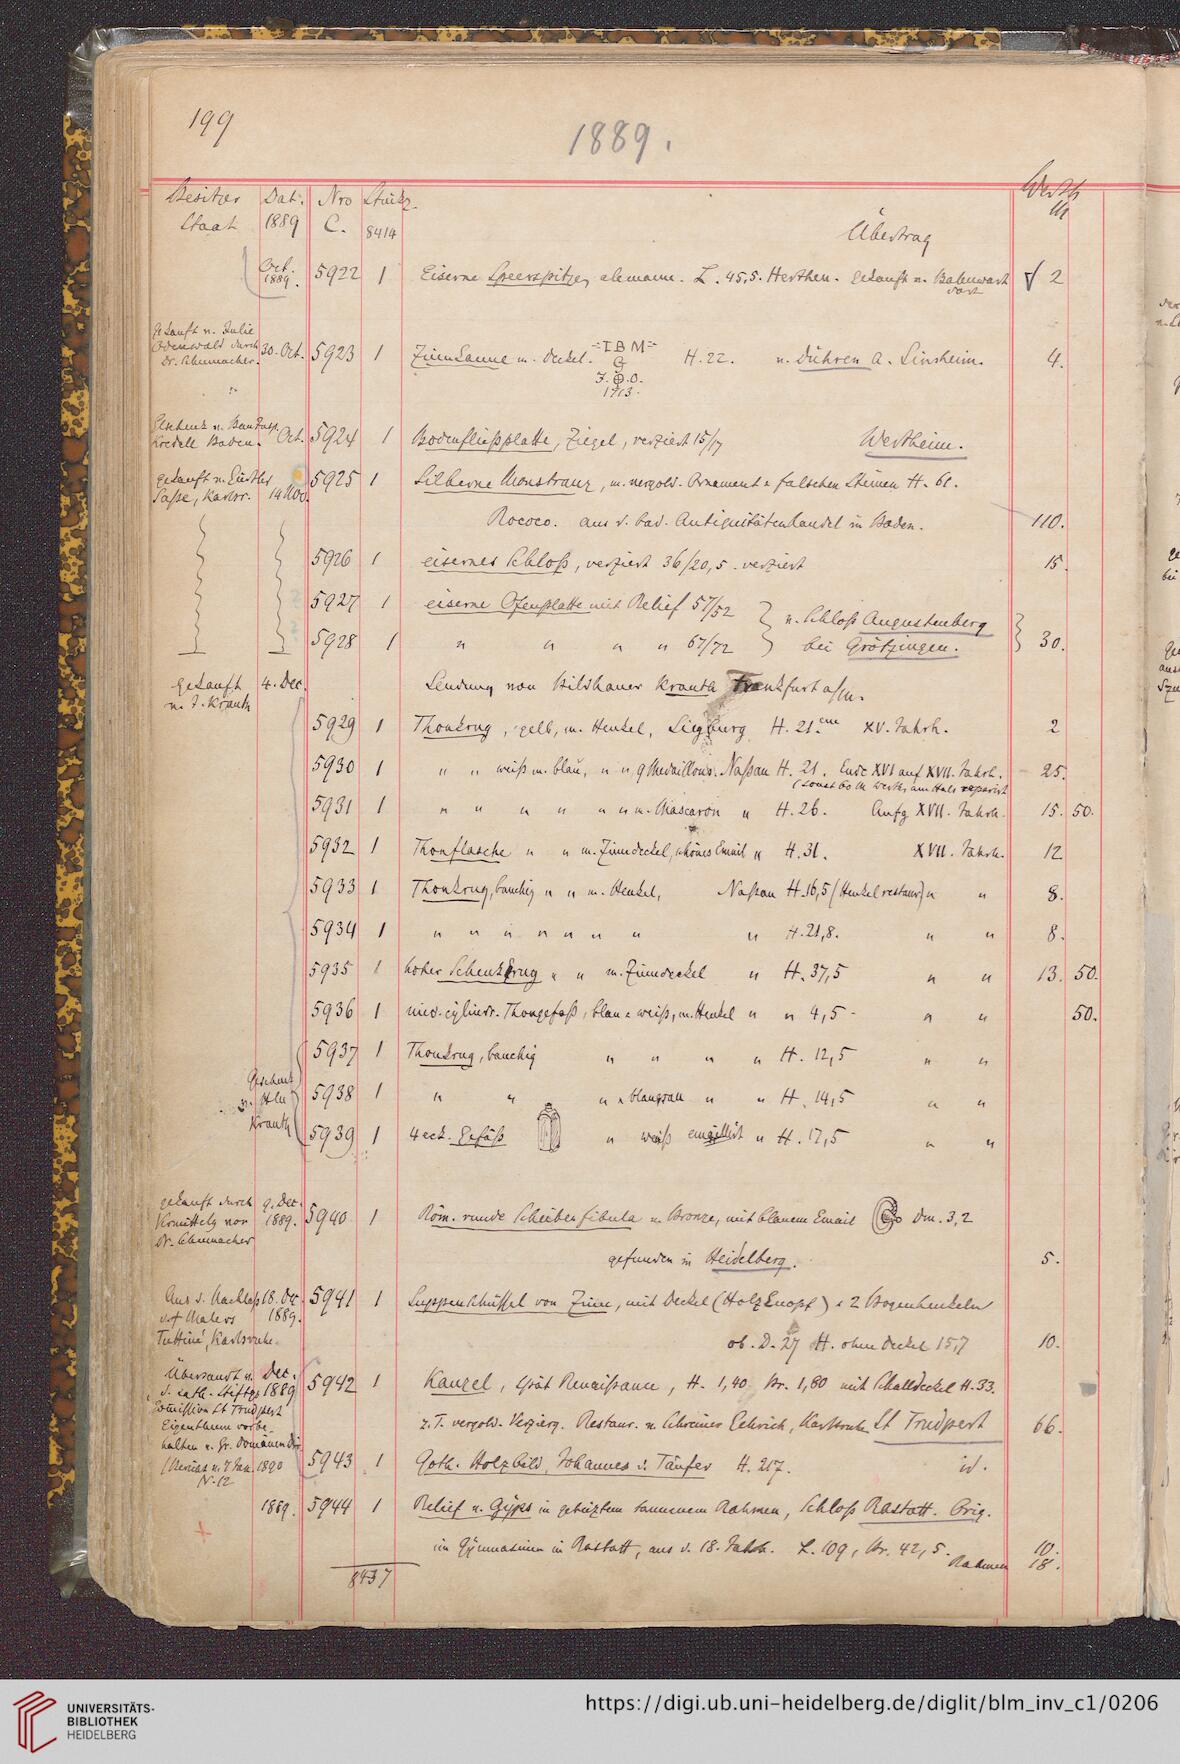 199
1889.
Besitzer Dat. Nro Stückz. Werth
Staat 1889 C. 8414 Übertrag M
Oct. 1889. 5922 1 Eiserne Speerspitze, alemann. L. 45,5. Herthen. gekauft v. dort 2
gekauft v. Julie
Odenwald durch
Dr. Schumacher. 30. Oct. 5923 1 Zinnkanne m. Deckel. I B M H. 22. v. Dühren A. Sinsheim. 4.
G
J. O.
1713.
"
Geschenk v. Bauinsp.
Kredell Baden. Oct. 5924 1 Bodenfließplatte, Ziegel, verziert 15/17 Wertheim.
gekauft v. Gürtler
Saße, Karlsr. 14 Nov. 5925 1 Silberne Monstranz, m. vergold. Ornament u. falschen Steinen H. 61.
Rococo. aus d. bad. Antiquitätenhandel in Baden. 110.
5926 1 eisernes Schloß, verziert 36/20,5. verziert 15.
5927 1 eiserne Ofenplatte mit Relief 57/52 v. Schloß Augustenberg
5928 1 " " " " 67/72 bei Grötzingen. 30.
gekauft 4. Dec. Sendung von Bildhauer Krauth Frankfurt a/M.
v. J. Krauth
5929 1 Thonkrug, gelb, m. Henkel, Siegburg H. 21. cm XV. Jahrh. 2
5930 1 " " weiß m. blau, " " 9 Medaillons. Naßau H. 21. Ende XVI auf XVII. Jahrh. 25.
(sonst 60 M werth, am Hals reparirt
5931 1 " " " " " " m. Mascaron " H. 26. Anfg XVII. Jahrh. 15. 50.
5932 1 Thonflasche " " m. Zinndeckel, schönes Email " H. 31. XVII. Jahrh. 12
5933 1 Thonkrug, bauchig " " m. Henkel, Naßau H. 16,5 (Henkel restaur) " " 8.
5934 1 " " " " " " " " H. 21,8. " " 8.
5935 1 hoher Schenkkrug " " m. Zinndeckel " H. 37,5 " " 13. 50.
5936 1 nied. cylindr. Thongefäß, blau u. weiß, m. Henkel " " 4,5 - " " 50.
5937 1 Thonkrug, bauchig " " " " H. 12,5 " "
Geschenk
v. Hln
Krauth
5938 1 " " " " blaugrau " " H. 14,5 " "
5939 1 4 eck. Gefäß " weiß emaillirt " H. 17,5 " "
gekauft durch 9. Dec.
Vermittelg von 1889. 5940 1 Röm. runde Scheibenfibula v. Bronze, mit blauem Email Dm. 3,2
Dr. Schumacher
gefunden in Heidelberg. 5.
Aus d. Nachlaß 18. Dec. 5941 1 Suppenschüssel von Zinn, mit Deckel (Holzknopf) u. 2 Bogenhenkeln
d. † Malers 1889.
Tuttiné, Karlsruhe. ob. D. 27 H. ohne Deckel 15,7 10.
Übersandt v. Dec.
d. kath. Stiftgs 1889 5942 1 Kanzel, spät Renaißance, H. 1,40 Br. 1,80 mit Schalldeckel H. 33.
Comission St Trudpert
Eigenthum vorbe- z. T. vergold. Verzierg. Restaur. v. Schreiner Gehrich, Karlsruhe St Trudpert 66.
halten v. Gr. Domänen Dir.
(Bericht v. 7 Jan. 1890 5943 1 Goth. Holzbild, Johannes d. Täufer H. 217. id.
N. 12
1889. 5944 1 Relief v. Gyps in gebeiztem tannenem Rahmen, Schloß Rastatt. Orig.
im Gymnasium in Rastatt, aus d. 18. Jahh. L. 109, Br. 42,5. 10.
Rahmen 18.
8437
UNIVERSITÄTS-
BIBLIOTHEK
HEIDELBERG
https://digi.ub.uni-heidelberg.de/diglit/blm_inv_c1/0206